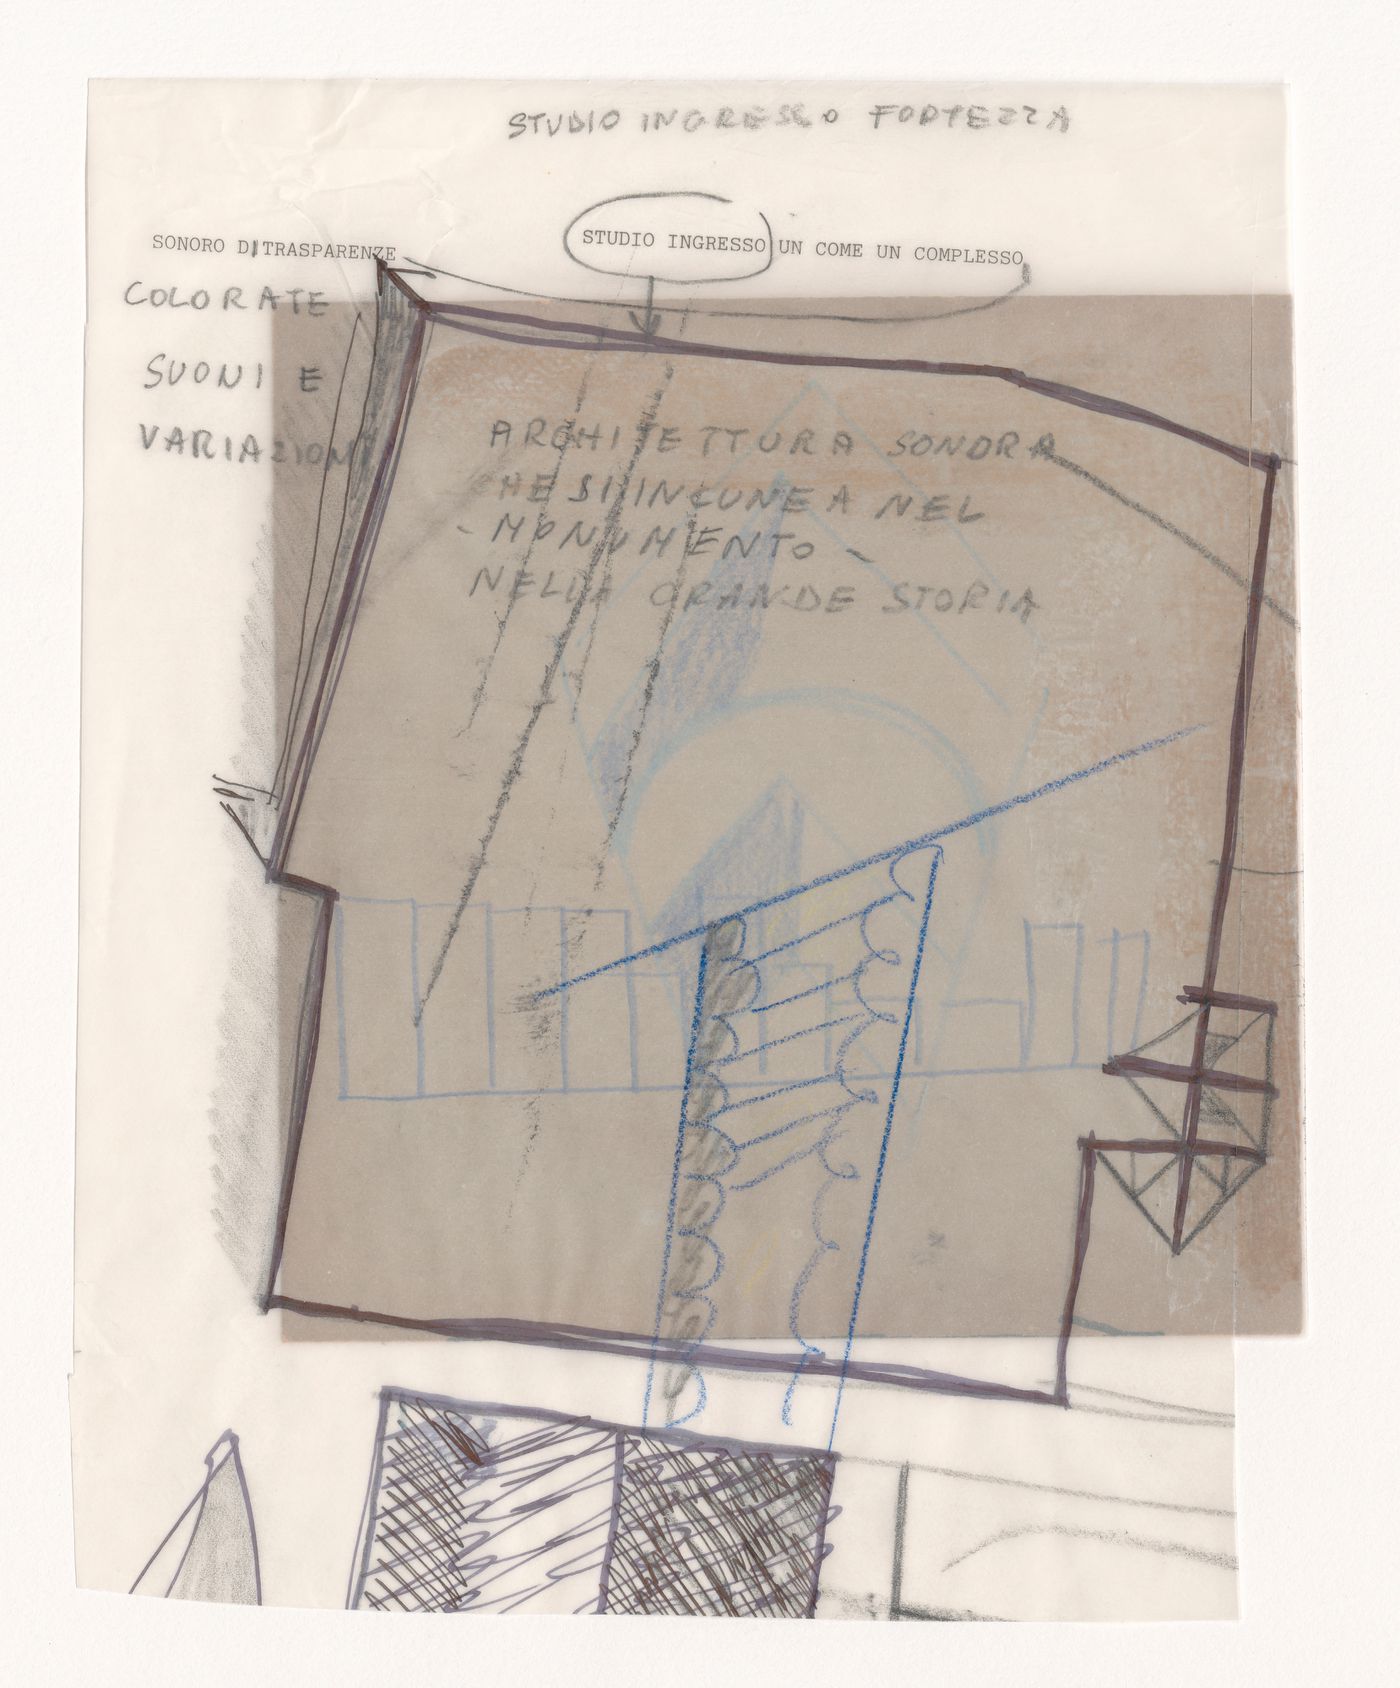 STUDIO INGRESSO FORTEZZA
STUDIO INGRESSO UN COME UN COMPLESSO
SONORO DI TRASPARENZE
COLORATE
SUONI E
VARIAZIONI
ARCHITETTURA SONORA
CHE SI INCUNEA NEL
- MONUMENTO -
NELLA GRANDE STORIA